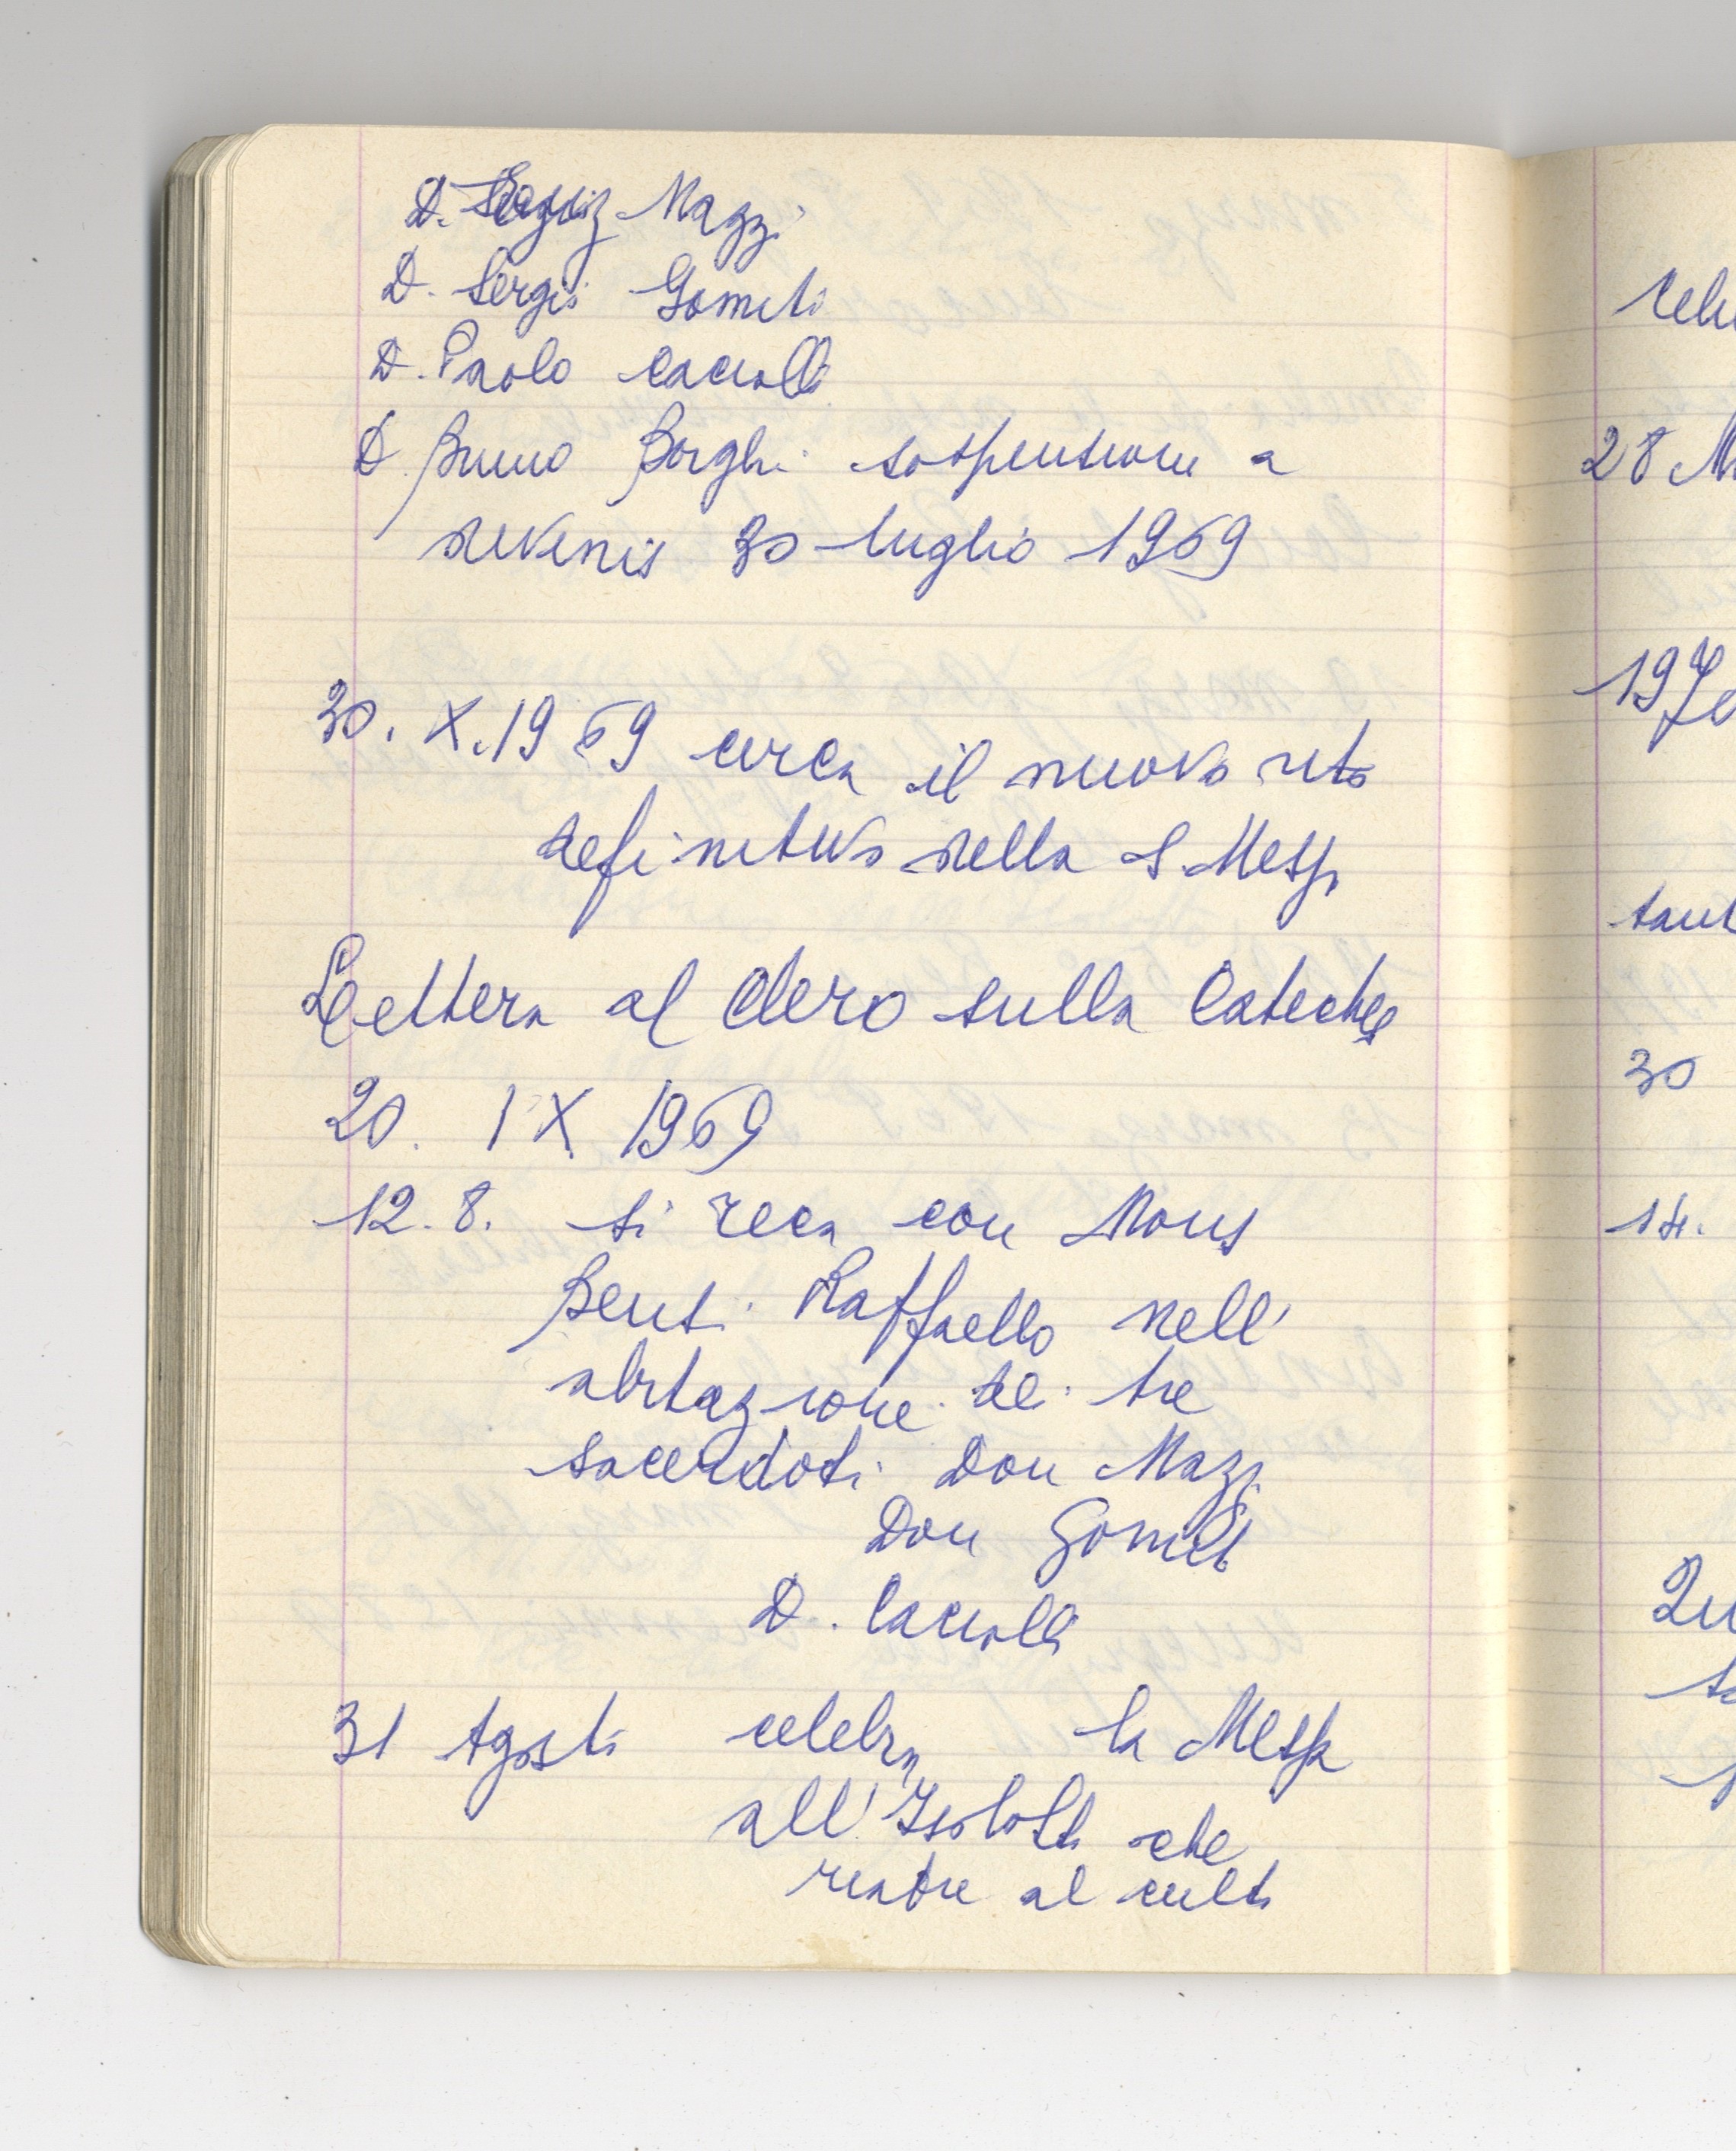 D. Mazzi
D. Sergio Gomiti
D. Paolo Caciolli
D. Bruno Borghi sospensione a
divinis 30 luglio 1969
30. X. 1969 circa il nuovo rito
definitivo della S. Messa
Lettera al Clero sulla Catechesi
20. IX 1969
12. 8. si reca con Mons
Bensi Raffaello nell'
abitazione dei tre
sacerdoti Don Mazzi
Don Gomiti
D. Caciolli
31 Agosto celebra la Messa
all'Isolotto che
riapre al culto
28 M
197
30
14.